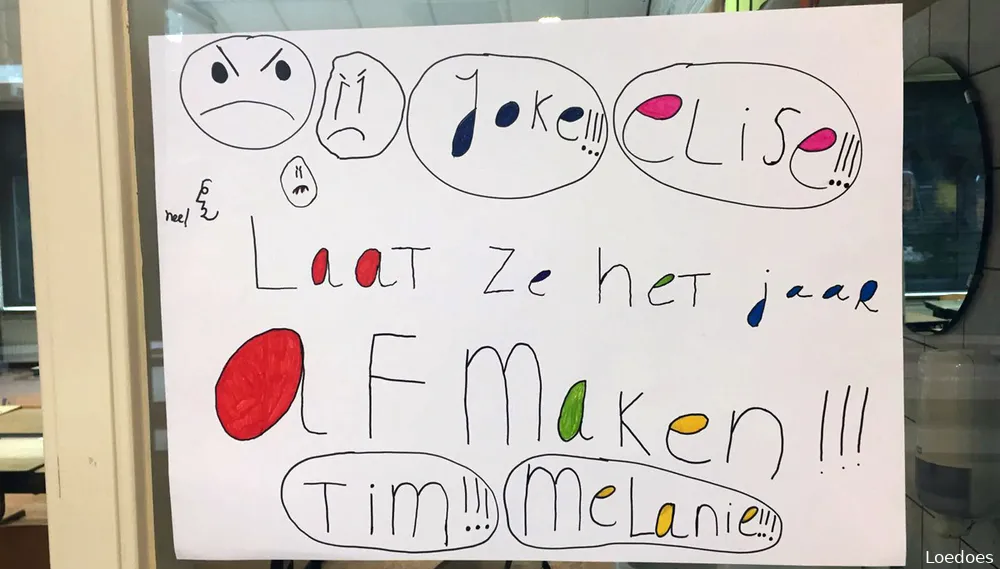 Joke!!! eLiSe!!!
neel
LaaT ze heT jaar
aF maken!!!
Tim!!! meLanie!!!
Loedoes